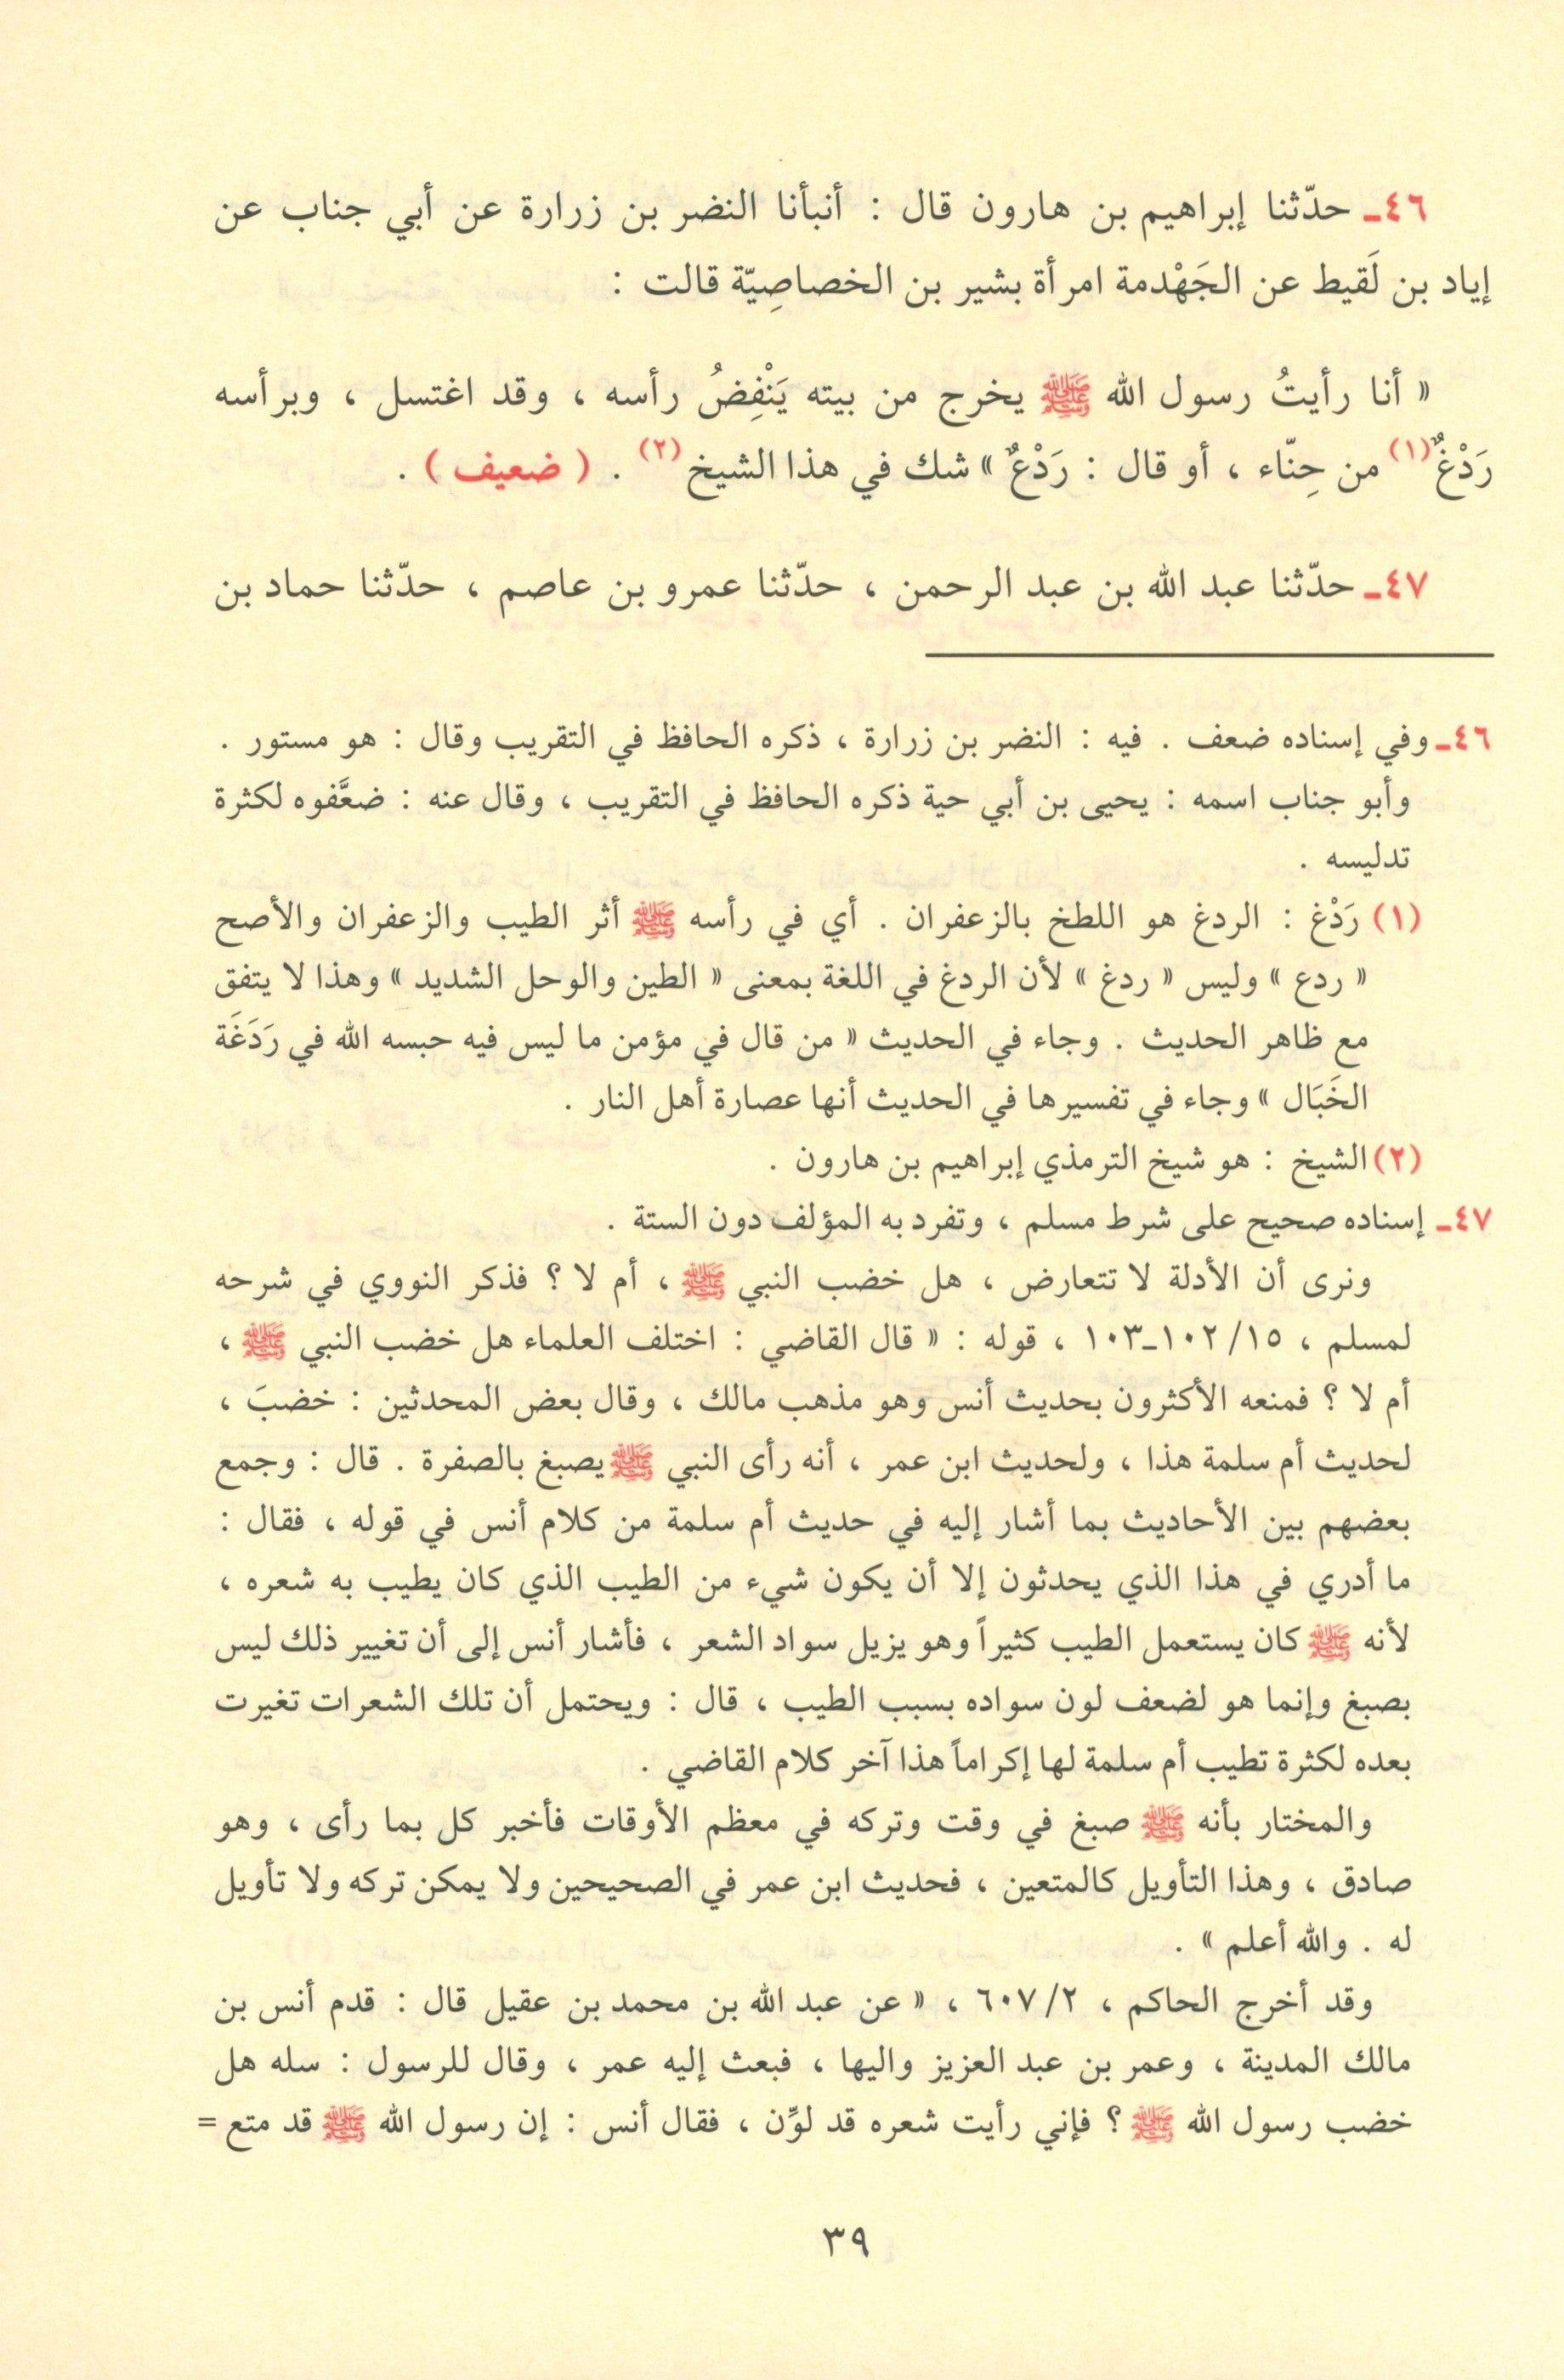 ٤٦ـ حدّثنا إبراهيم بن هارون قال : أنبأنا النضر بن زرارة عن أبي جناب عن
إياد بن لَقيط عن الجَهْدمة امرأة بشير بن الخصاصِيّة قالت :
« أنا رأيتُ رسول الله ﷺ يخرج من بيته يَنْفِضُ رأسه ، وقد اغتسل ، وبرأسه
رَدْغٌ(١) من حِنّاء ، أو قال : رَدْعٌ » شك في هذا الشيخ(٢) . ( ضعيف ) .
٤٧ـ حدّثنا عبد الله بن عبد الرحمن ، حدّثنا عمرو بن عاصم ، حدّثنا حماد بن
٤٦ـ وفي إسناده ضعف . فيه : النضر بن زرارة ، ذكره الحافظ في التقريب وقال : هو مستور .
وأبو جناب اسمه : يحيى بن أبي حية ذكره الحافظ في التقريب ، وقال عنه : ضعَّفوه لكثرة
تدليسه .
(١) رَدْغ : الردغ هو اللطخ بالزعفران . أي في رأسه ﷺ أثر الطيب والزعفران والأصح
« ردع » وليس « ردغ » لأن الردغ في اللغة بمعنى « الطين والوحل الشديد » وهذا لا يتفق
مع ظاهر الحديث . وجاء في الحديث « من قال في مؤمن ما ليس فيه حبسه الله في رَدَغَة
الخَبَال » وجاء في تفسيرها في الحديث أنها عصارة أهل النار .
(٢) الشيخ : هو شيخ الترمذي إبراهيم بن هارون .
٤٧ـ إسناده صحيح على شرط مسلم ، وتفرد به المؤلف دون الستة .
ونرى أن الأدلة لا تتعارض ، هل خضب النبي ﷺ ، أم لا ؟ فذكر النووي في شرحه
لمسلم ، ١٥/ ١٠٢ـ١٠٣ ، قوله : « قال القاضي : اختلف العلماء هل خضب النبي ﷺ ،
أم لا ؟ فمنعه الأكثرون بحديث أنس وهو مذهب مالك ، وقال بعض المحدثين : خضبَ ،
لحديث أم سلمة هذا ، ولحديث ابن عمر ، أنه رأى النبي ﷺ يصبغ بالصفرة . قال : وجمع
بعضهم بين الأحاديث بما أشار إليه في حديث أم سلمة من كلام أنس في قوله ، فقال :
ما أدري في هذا الذي يحدثون إلا أن يكون شيء من الطيب الذي كان يطيب به شعره ،
لأنه ﷺ كان يستعمل الطيب كثيراً وهو يزيل سواد الشعر ، فأشار أنس إلى أن تغيير ذلك ليس
بصبغ وإنما هو لضعف لون سواده بسبب الطيب ، قال : ويحتمل أن تلك الشعرات تغيرت
بعده لكثرة تطيب أم سلمة لها إكراماً هذا آخر كلام القاضي .
والمختار بأنه ﷺ صبغ في وقت وتركه في معظم الأوقات فأخبر كل بما رأى ، وهو
صادق ، وهذا التأويل كالمتعين ، فحديث ابن عمر في الصحيحين ولا يمكن تركه ولا تأويل
له . والله أعلم » .
وقد أخرج الحاكم ، ٢/ ٦٠٧ ، « عن عبد الله بن محمد بن عقيل قال : قدم أنس بن
مالك المدينة ، وعمر بن عبد العزيز واليها ، فبعث إليه عمر ، وقال للرسول : سله هل
خضب رسول الله ﷺ ؟ فإني رأيت شعره قد لوِّن ، فقال أنس : إن رسول الله ﷺ قد متع =
٣٩